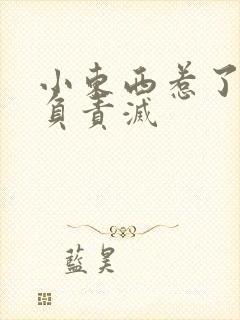 小东西惹了
負責滅
藍昊